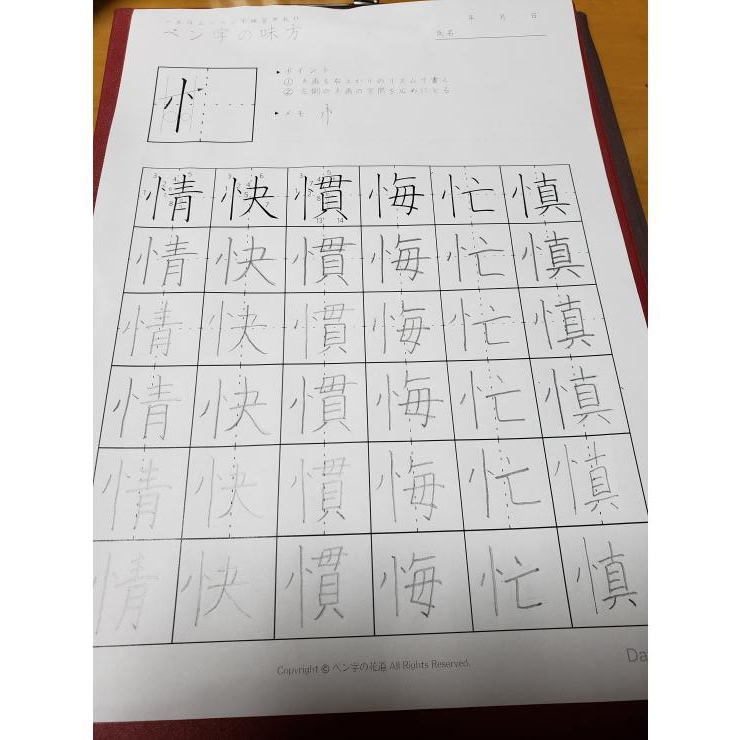 ペン字の味方
年 月 日
氏名
▶ポイント
▶メモ 忄
情 快 慣 悔 忙 慎
情 快 慣 悔 忙 慎
情 快 慣 悔 忙 慎
情 快 慣 悔 忙 慎
情 快 慣 悔 忙 慎
情 快 慣 悔 忙 慎
Copyright © ペン字の花道 All Rights Reserved.